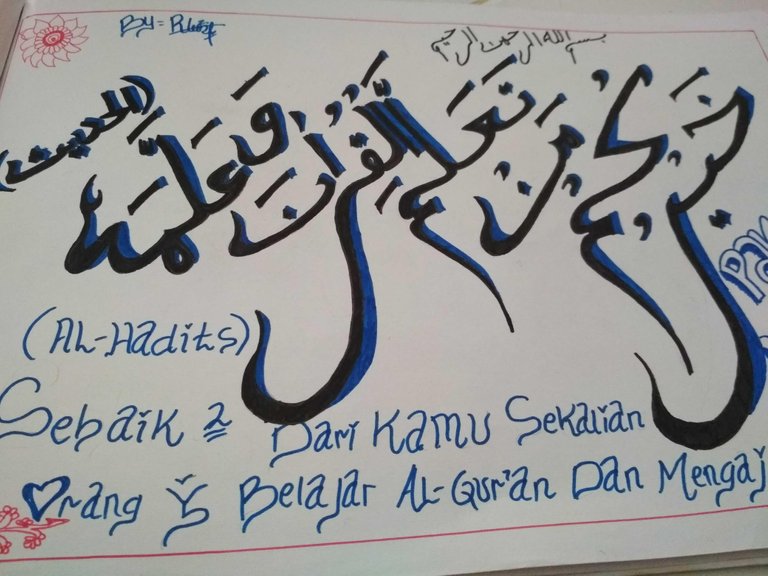 By =
بسم الله الرحمن الرحيم
خيركم من تعلم القران وعلمه (الحديث)
(AL-Hadits)
Sebaik 2 Dari Kamu Sekalian
Orang Yg Belajar AL-Qur'an Dan Mengaj